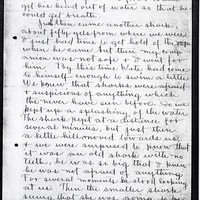 get his head out of water so that he
could get breath.
Just then came another shark
about fifty yds from where we were
I just tried to get hold of the rope
when he came but then my comp-
anion were not safe & I went for
him. By this time Nate had come
to himself enough to swim a little.
We knew that sharks were afraid
& suspicious of anything which
they never have seen before. So we
kept up a splashing of the water
The shark kept at a distance for
several minutes, but just then
a little bell moved
& we were supposed to know that
it was an old shark with no
teeth, he was as big that I knew
he was not afraid of anything.
For several moments he stood looking
at us. Then the smaller shark
seeing that she was going to